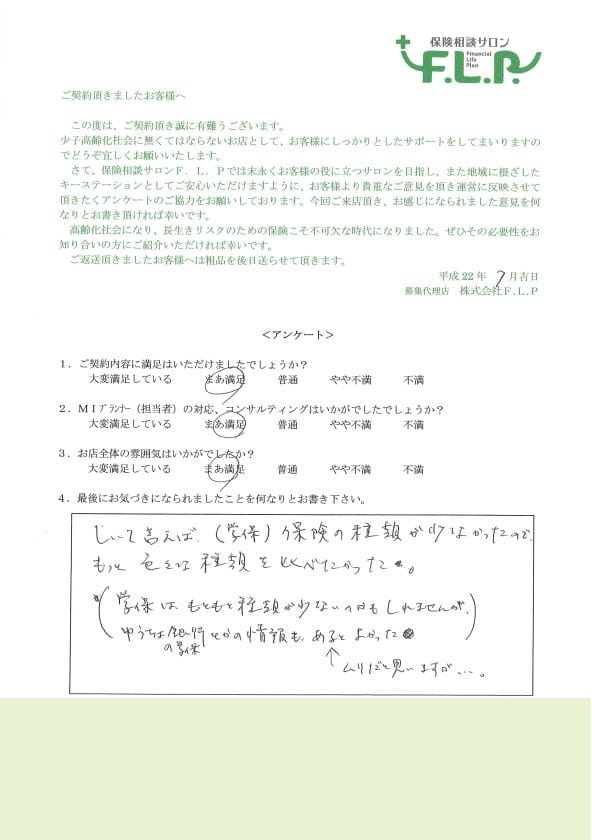 保険相談サロン
Financial
Life
Plan
F.L.P.
ご契約頂きましたお客様へ
この度は、ご契約頂き誠に有難うございます。
少子高齢化社会に無くてはならないお店として、お客様にしっかりとしたサポートをしてまいりますの
でどうぞ宜しくお願いいたします。
さて、保険相談サロンF．L．Pでは末永くお客様の役に立つサロンを目指し、また地域に根ざした
キーステーションとしてご安心いただけますように、お客様より貴重なご意見を頂き運営に反映させて
頂きたくアンケートのご協力をお願いしております。今回ご来店頂き、お感じになられました意見を何
なりとお書き頂ければ幸いです。
高齢化社会になり、長生きリスクのための保険こそ不可欠な時代になりました。ぜひその必要性をお
知り合いの方にご紹介いただければ幸いです。
ご返送頂きましたお客様へは粗品を後日送らせて頂きます。
平成 22 年 7月吉日
募集代理店 株式会社F.L.P
＜アンケート＞
１．ご契約内容に満足はいただけましたでしょうか？
大変満足している まあ満足 普通 やや不満 不満
２．MIプランナー（担当者）の対応、コンサルティングはいかがでしたでしょうか？
大変満足している まあ満足 普通 やや不満 不満
３．お店全体の雰囲気はいかがでしたか？
大変満足している まあ満足 普通 やや不満 不満
４．最後にお気づきになられましたことを何なりとお書き下さい。
しいて言えば、(学保)保険の種類が少なかったので、
もっと色々な種類を比べたかった。
(学保は、もともと種類が少ないのかもしれませんが、)
ゆうちょ とかの情報も、あるとよかった
の学保
↑ムリだと思いますが…。